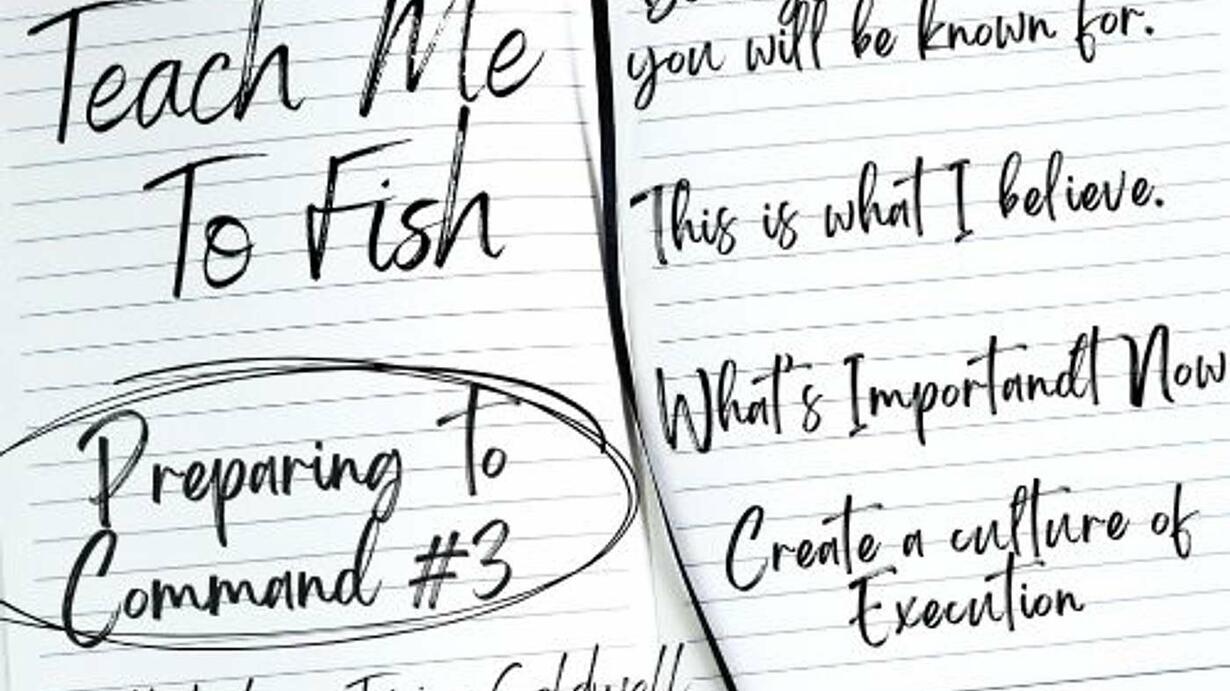 Teach Me
To Fish
Preparing To
Command #3
you will be known for.
This is what I believe.
What's Importandt Now
Create a culture of
Execution